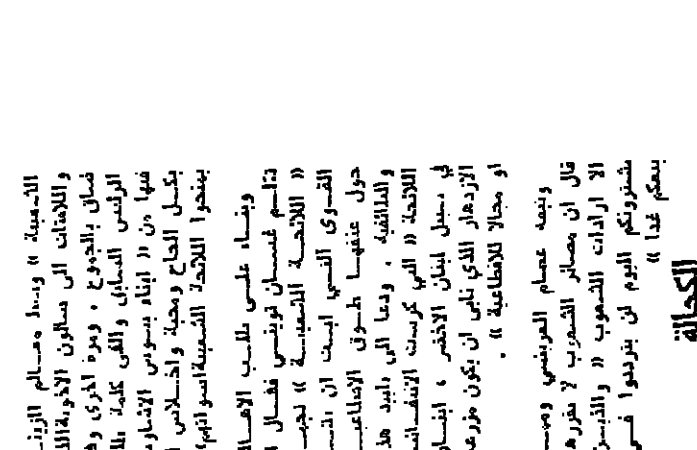 الشعبية » وسط معالم الزينـ
واللافتات الى صالون الاخوية
ضاق بالجموع ، ومرة اخرى
الرئيس السابق والقى كلمة
فيها من « ابناء بسوس
بكل الحاح ومحبة واخلاص
يمنحوا اللائحة الشعبية اصواتهم
وبناء على طلب
تكلم غسان تويني فقال
« اللائحة الشعبية »
القوى التي ابت ان
حول عنقها طوق
والطائفية ، ودعا الى تأييد
اللائحة « التي كرست
في سبيل لبنان الاخضر ،
الازدهار الذي نأبى ان يكون
او مجالا للاقطاعية » .
وتبعه عصام العريضي
قال ان مصائر الشعوب لا
الا ارادات الشعوب « والذيـن
يشترونكم اليوم لن يترددوا فـي
بيعكم غدا »
الكحالة